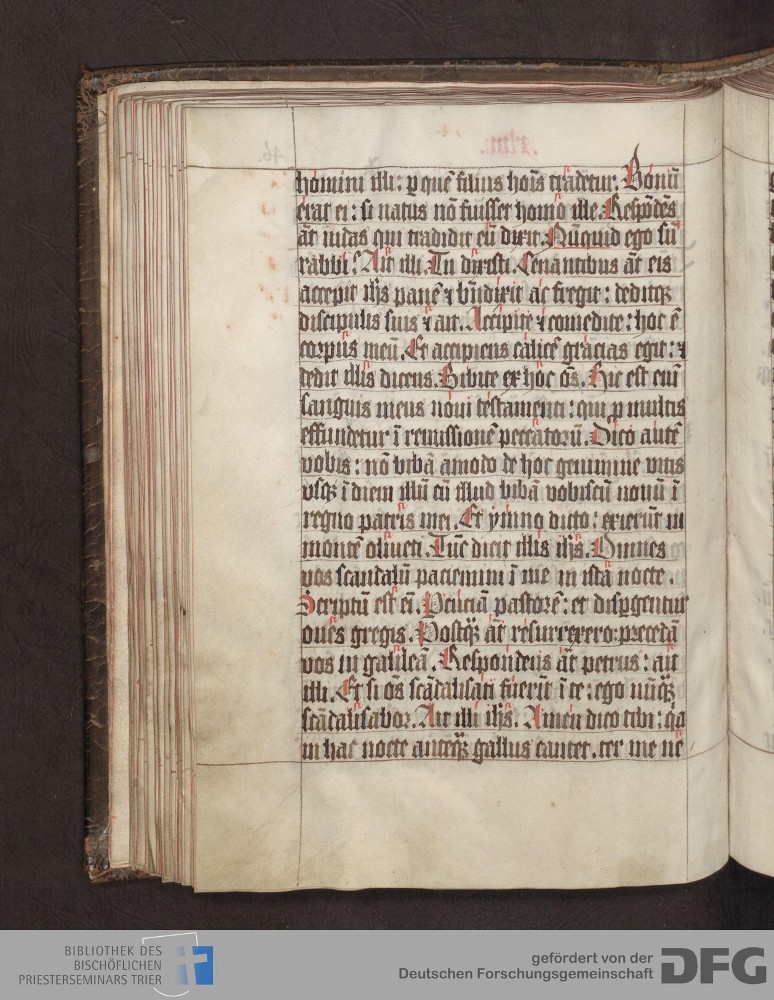 homini illi: ꝑ quē filius hoīs tradetur. Bonū
erat ei: si natus nō fuisset homo ille. Respōdēs
āt iudas qui tradidit eū dixit. Nūquid ego sū
rabbi? Ait illi. Tu dixisti. Cenantibus āt eis
accepit ihs̄ panē ⁊ bn̄dixit ac fregit: deditqꝫ
discipulis suis ⁊ ait. Accipite ⁊ comedite: hoc ē
corpus meū. Et accipiens calicē gracias egit: ⁊
dedit illis dicens. Bibite ex hoc om̄s. Hic est enī
sanguis meus noui testamenti: qui ꝓ multis
effundetur ī remissionē peccatorū. Dico autē
vobis: nō bibā amodo de hoc genimine vitis
vsqꝫ ī diem illū cū illud bibā vobiscū nouū ī
regno patris mei. Et ymno dicto: exierūt in
montē oliueti. Tūc dicit illis ihs̄. Omnes
vos scandalū paciemini ī me in ista nocte.
Scriptū est ei̅. Percuciā pastorē: et dispgentur
oues gregis. Postqꝫ āt resurrexero: precedā
vos in galileā. Respondens āt petrus: ait
illi. Et si om̄s scādalisati fuerīt ī te: ego nūqꝫ
scādalisabor. Ait illi ihs̄. Amen dico tibi: qa
in hac nocte anteqꝫ gallus cantet. ter me ne
BIBLIOTHEK DES
BISCHÖFLICHEN
PRIESTERSEMINARS TRIER
gefördert von der
Deutschen Forschungsgemeinschaft DFG